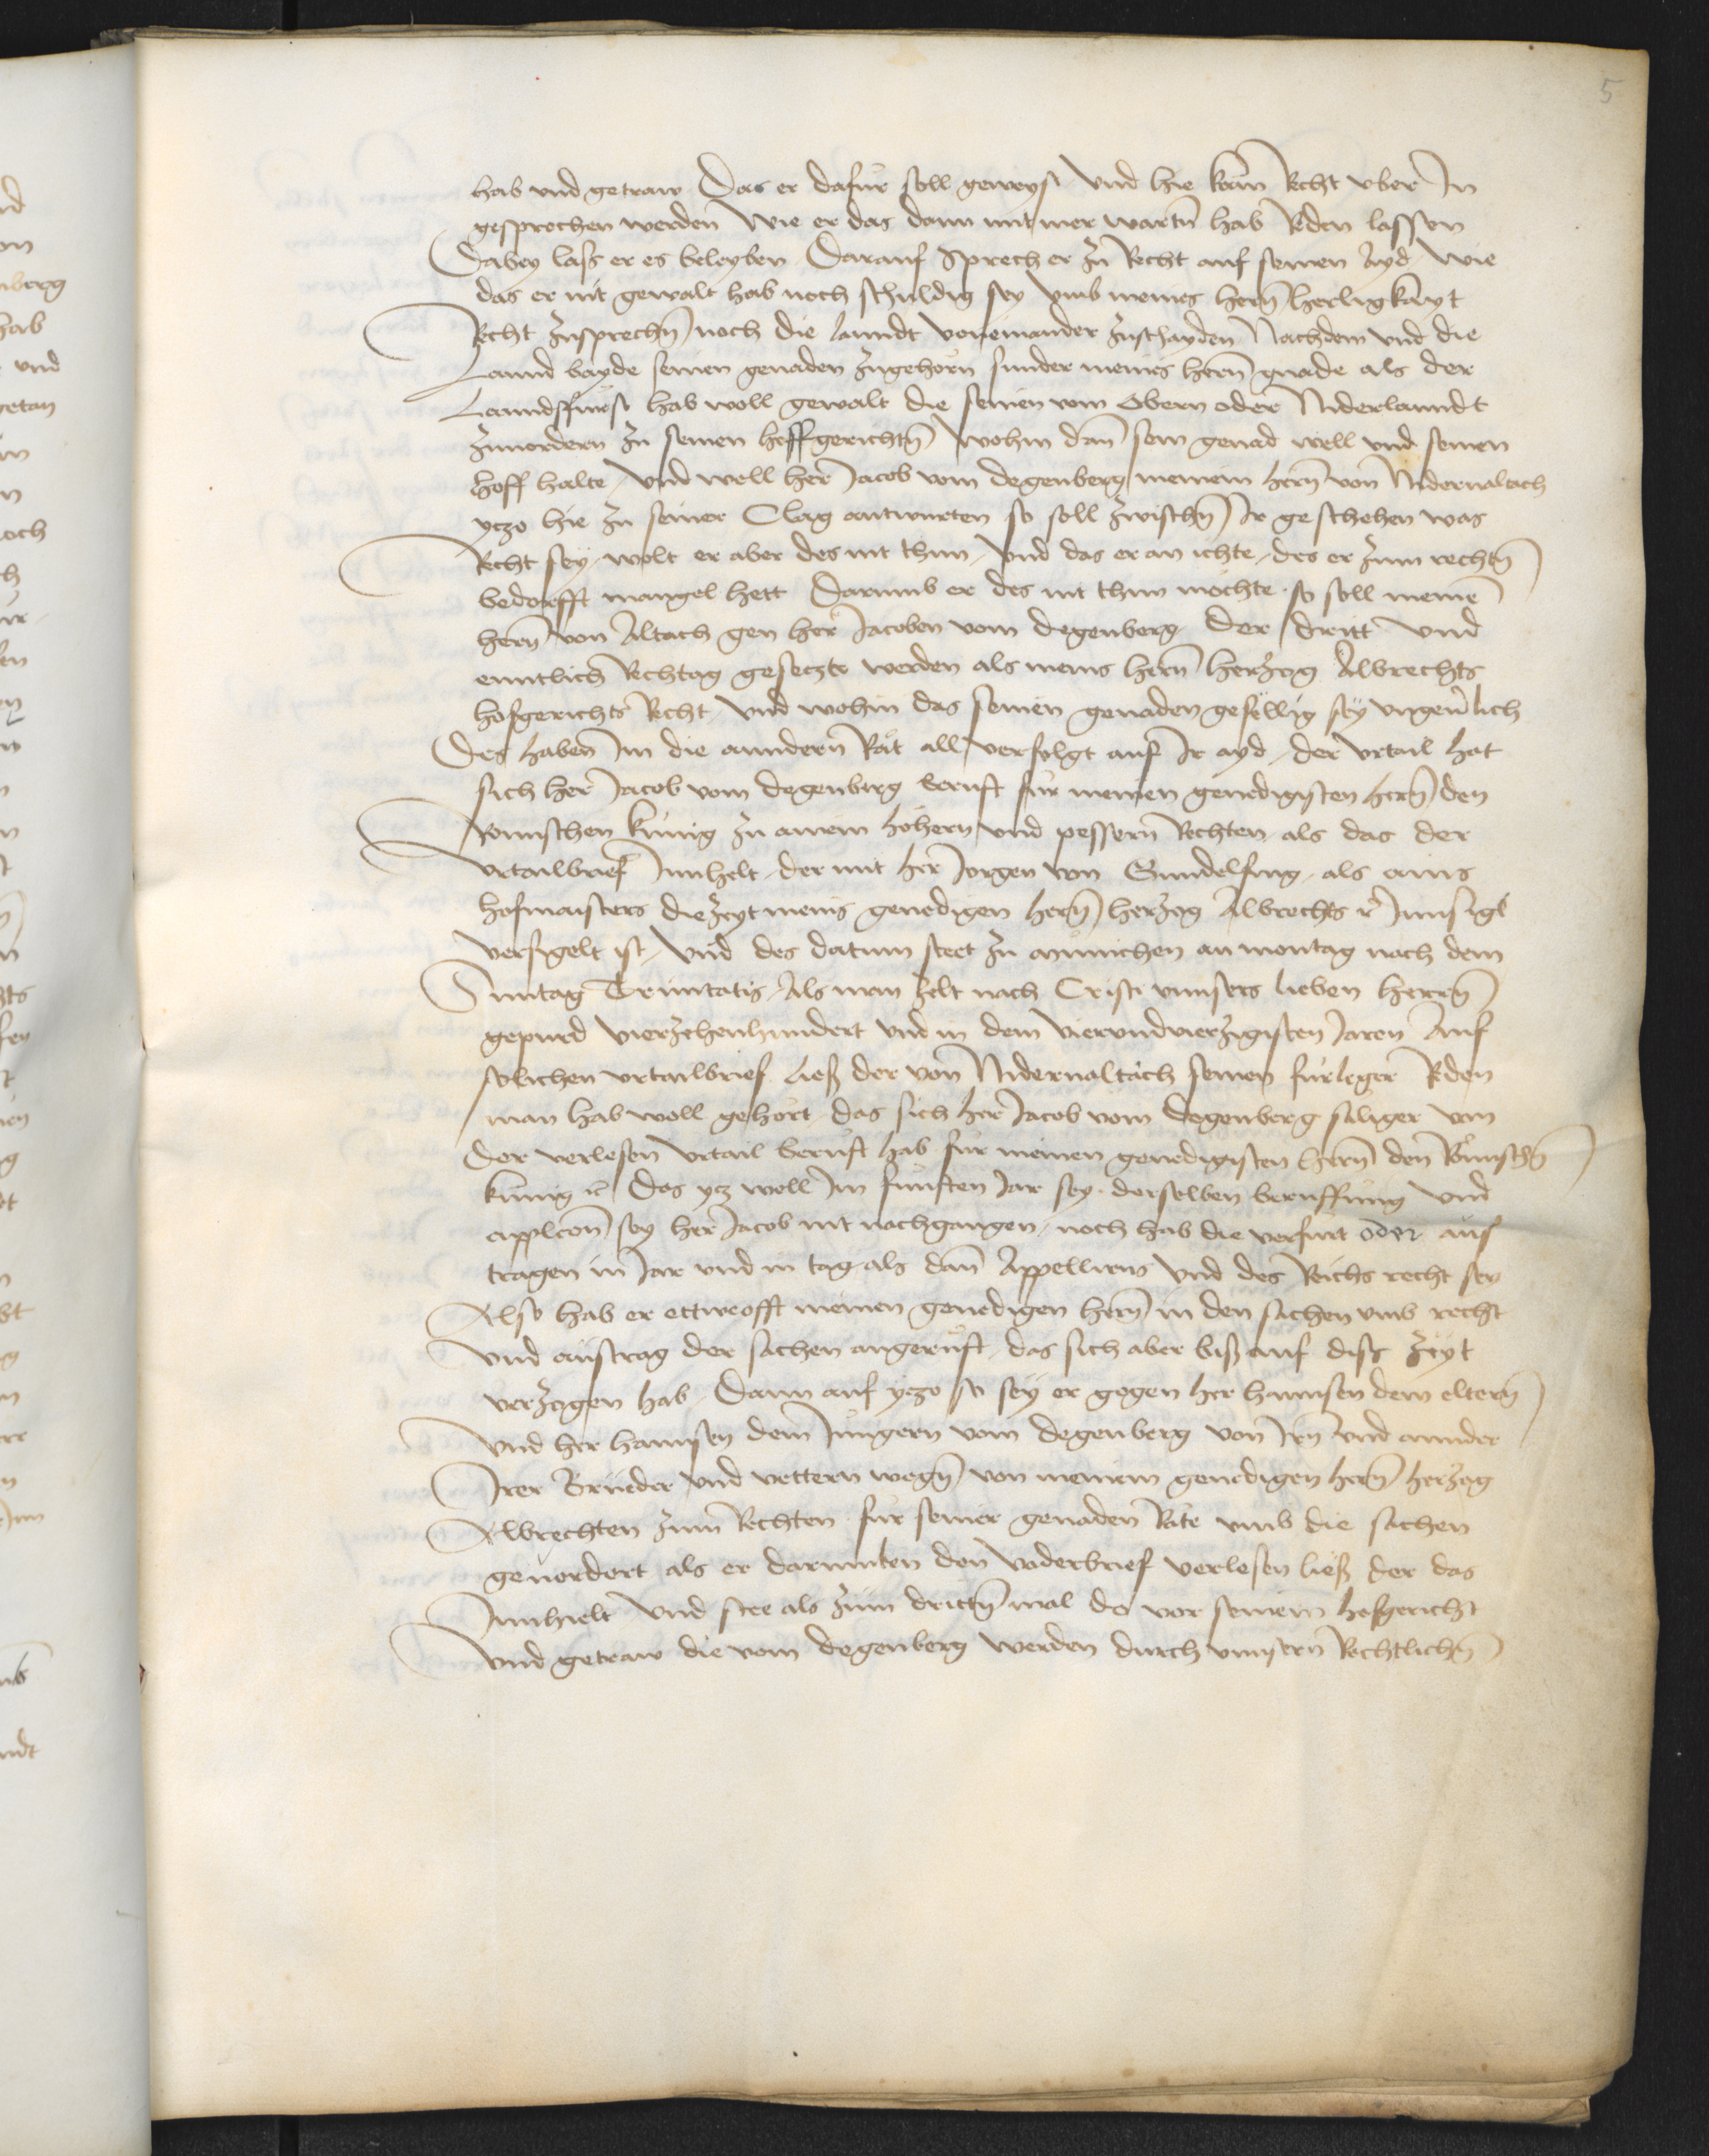 5
hab vnd getraw Das er dafur soll geweyst vnd hie kain Recht vber In
gesprochen werden Wie er das dann mit mer wartn̄ hab Reden lassen
Dabey lass er es beleyben Darauf Sprech er zu Recht auf seinen Ayd Wie
das er nit gewalt hab noch schuldig sey vmb meines hern̄ herligkayt
Recht zusprechn̄ noch die lanndt voneinander zuschayden Nachdem vnd die
Lannd bayde seinen genaden zugehorn sunder meins hern̄ gnade als der
Lanndsfurst hab woll gewalt die seinen vom Obern oder Niderlanndt
zuuordern zu seinen hoffgerichtn̄ Wohin dan̄ sein genad well vnd seinen
hoff halte Vnd well her Jacob vom Degenberg meinem hern̄ von Nidernaltach
yczo hie zu seiner Clag antwurten so soll zwischn̄ Ir geschehen was
Recht sey wolt er aber des nit thun Vnd das er an ichte des er zum rechtn̄
bedorfft mangel hett Darumb er des nit thun mochte so soll meinē
hern̄ von Altach gen her Jacoben vom Degenberg Der dritt vnd
enntlich Rechtag geseczt werden als meins hern̄ herzog Albrechts
hofgerichts Recht vnd wohin das seinen genaden gefellig sey vngeuerlich
Des haben im die anndern Rät all verfolgt auf Ir ayd der vrtail hat
sich her Jacob vom Degenberg berufft fur meinen genedigisten hern̄ den
Romischen kunig zu ainem hohern vnd pessern Rechten als das der
vrtailbrief Innhelt der mit her Jorgen von Gundelfing als ains
hofmaisters die zeyt meins genedigen hern̄ herzog Albrechts ꝛc̄ Innsigl
versigelt ist vnd des datum steet zu Munichen an montag nach dem
Sunntag Trinitatis Als man zelt nach Cristi vnnsers lieben herrn̄
gepurd vierzehenhundert vnd in dem vierundvierzigisten Jaren Auf
solichen vrtailbrief ließ der von Nidernaltach seinen furleger Reden
man hab woll gehort das sich her Jacob vom Degenberg saliger von
der verlesen vrtail berufft hab fur meinen genedigisten hern̄ den Römischn̄
kunig ꝛc̄ Das ycz woll Im funften Jar sey derselben beruffung vnd
applcon̄ sey her Jacob nit nachgangen noch hab die verfurt oder auß
tragen in Jar vnd in tag als dan̄ Appellirens vnd des Reichs recht sey
Also hab er ettweofft meinen genedigen hern̄ in den sachen vmb recht
vnd austrag der sachen angeruft das sich aber biß auf dise zeyt
verzogen hab Dann auf yczo so sey er gegen her hannsen dem eltern̄
vnd her hannsen dem Jungern vom Degenberg von Irn̄ vnd annder
Irer Bruder vnd vettern wegn̄ von meinem genedigen hern̄ herzog
Albrechten zum Rechten fur seiner genaden Räte vmb die sachen
geuordert als er darumben den Vaderbrief verlesen ließ der das
Innhielt vnd stee als zum drittn̄ mal da vor seinem hofgericht
vnd getraw die vom Degenberg werden durch vnnsern Rechtlichn̄